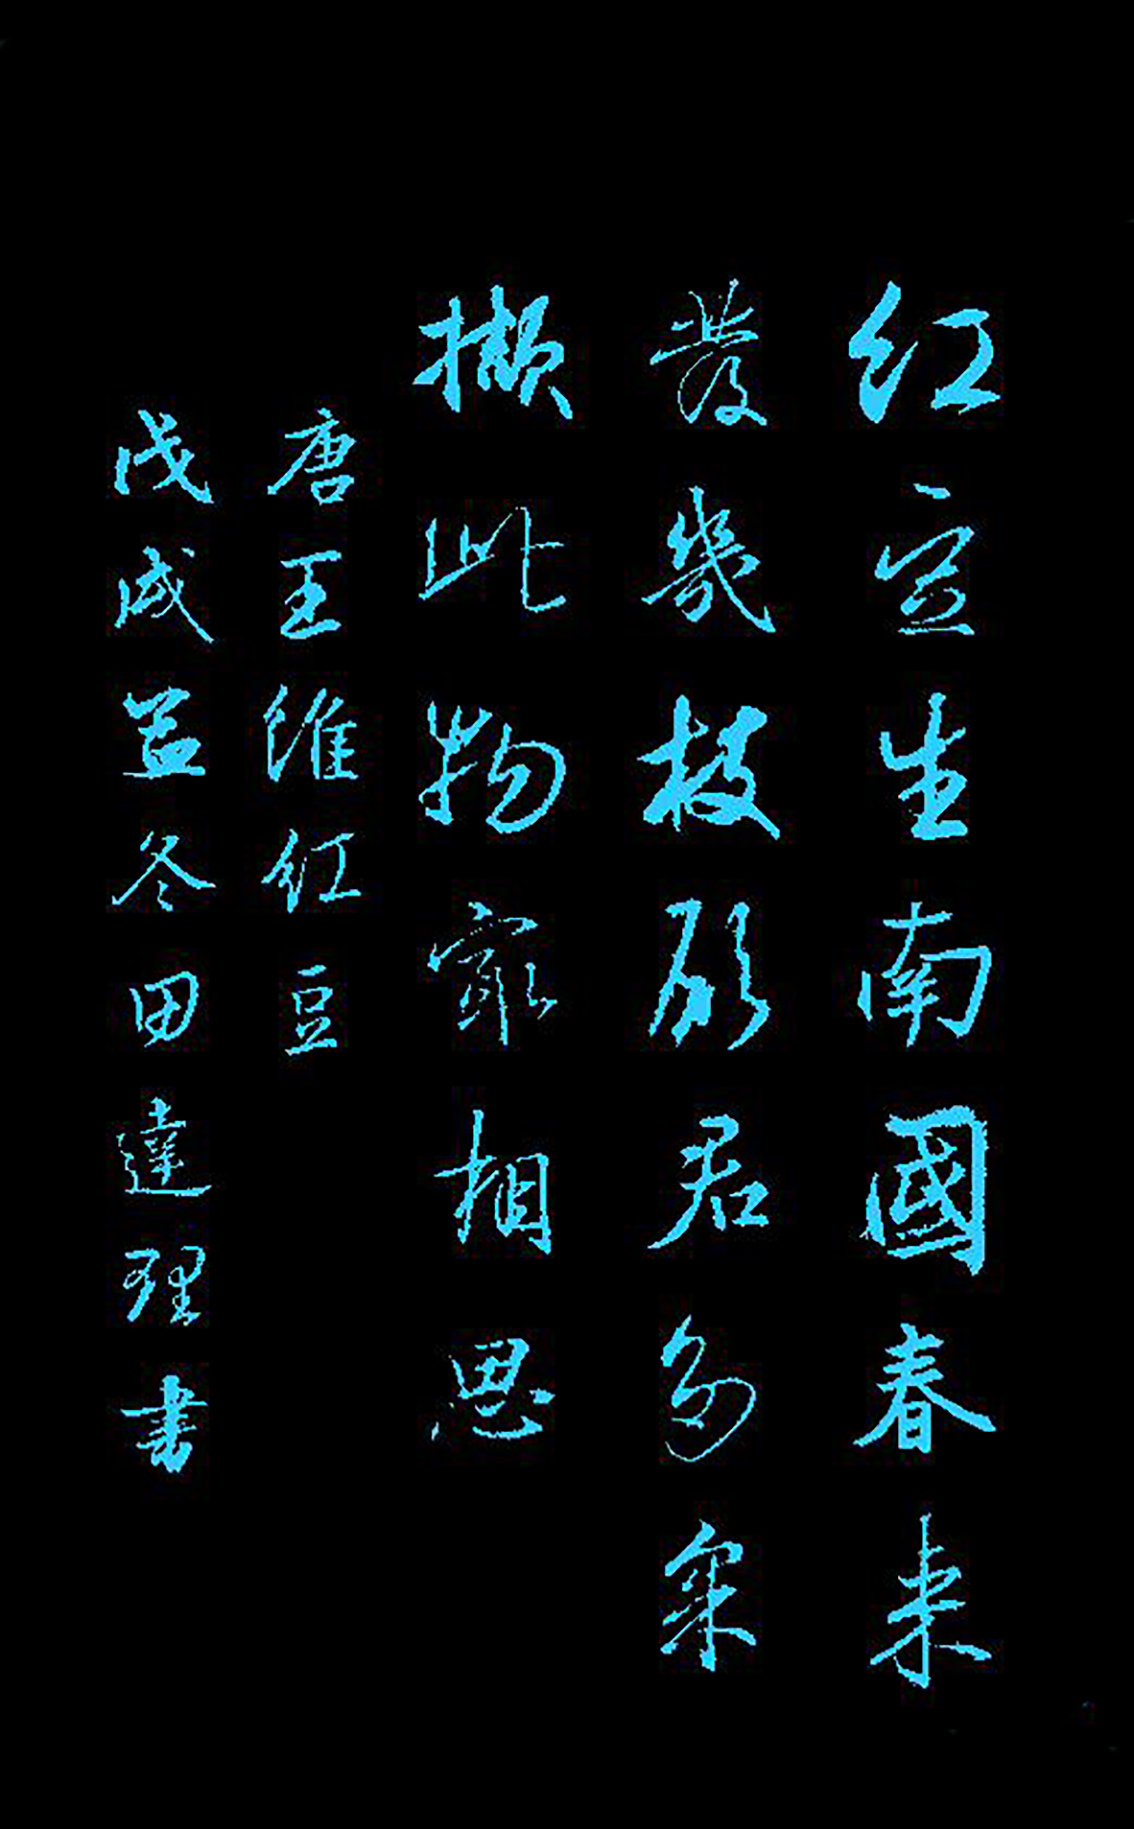 红豆生南國春来
發幾枝願君勿采
擷此物最相思
唐王維红豆
戊戌孟冬田達理書